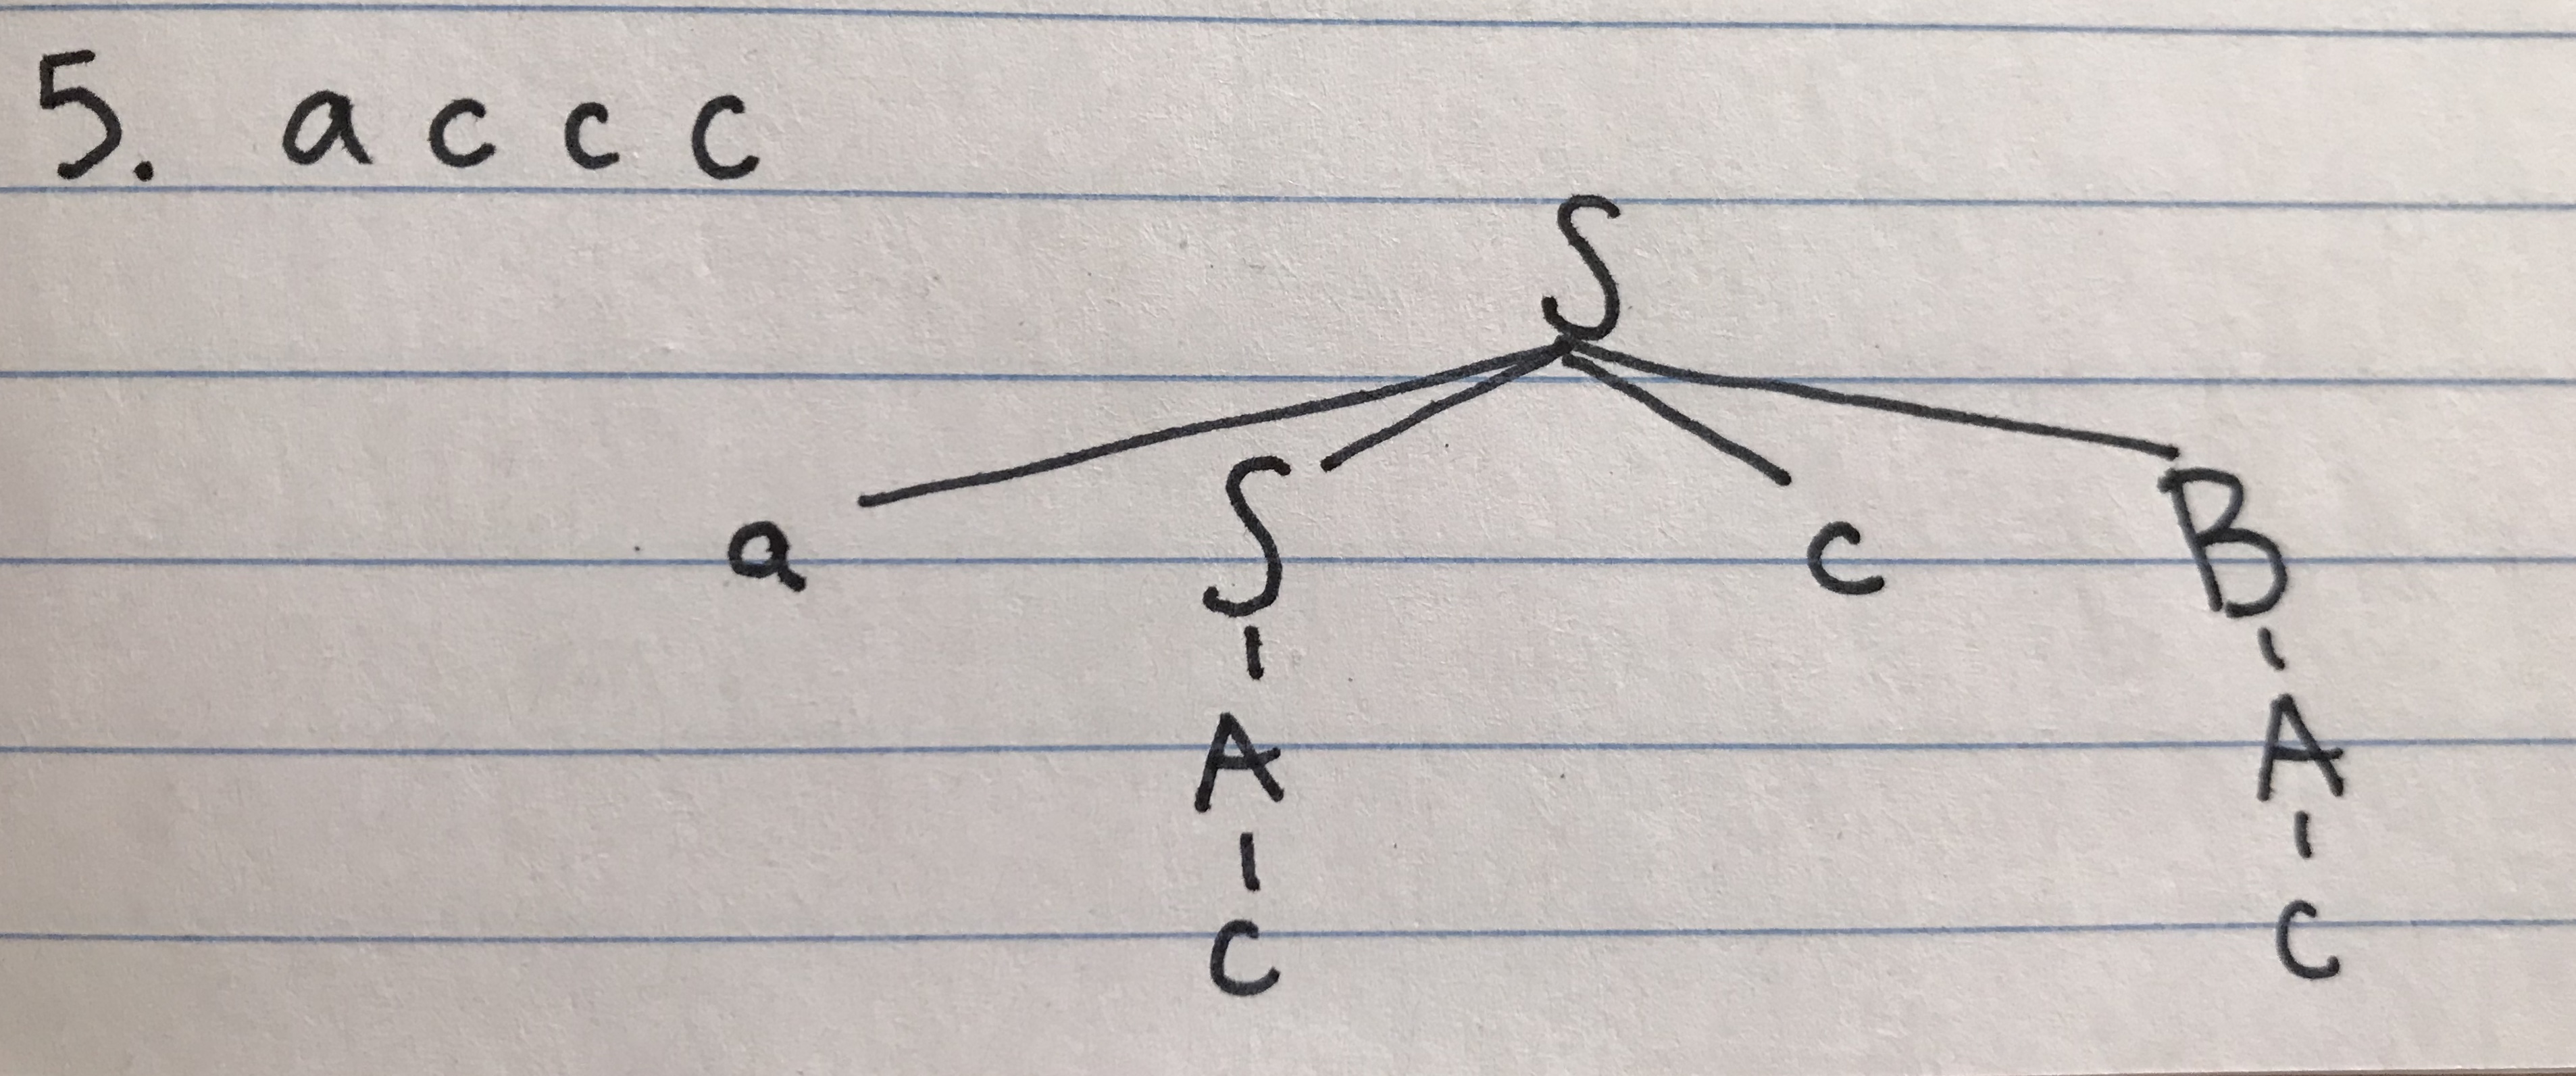 5. a c c c
S
a S c B
A A
c c